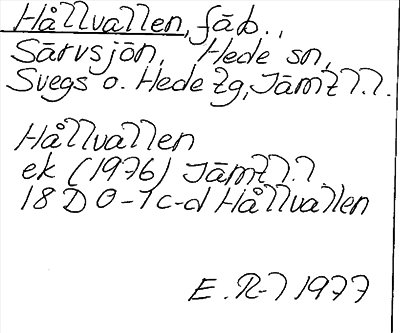 Hållvallen, fäb.,
Särvsjön, Hede sn,
Svegs o. Hede tg, Jämtl.l.
Hållvallen
ek (1976) Jämtl.l.
18D 0-1c-d Hållvallen
E.R-l 1977